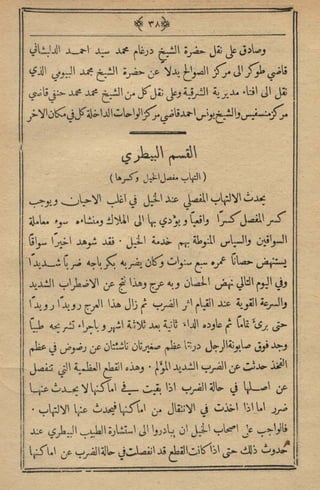 ﴿٣٨﴾
وصادق على نقل حضرة الشيخ درغام محمد سيد احمد الدلبشاني
قاضي طوكر الى مركز الصوالح بدلا عن حضرة الشيخ محمد البيومي الذي
نقل الى افتاء مديرية الشرقية وعلى نقل كل من الشيخ محمد محمد حنفي قاضي
مركز منسفيس والشيخ يونس احمد قاضي مركز الواحات الداخلة كل في مكان الاخر
القسم البيطري
( التهاب مفصل الخيل وكسرها )
يحدث الالتهاب المفصلي عند الخيل في اغلب الاحيان ويوجب
كسر المفصل كسرًا واقعيًا ويؤدي بها الى الهلاك ومنشاءه سوء معاملة
السواقين والسياس المنوطة بهم خدمة الخيل ٠ فقد شوهد اخيرًا سواقًا
يستنهض حصانًا عمره سبع سنوات وكان يضربه بكرباجه ضربًا شديدًا
وفي اليوم التالي نهض الحصان وبه عرج وهذا نتج عن الاضطراب الشديد
والسرعة القوية عند القيام اثر الضرب ثم زال هذا العرج رويدًا رويدًا
حتى برئ تمامًا ثم عاوده الداء ثانية بعد ثلاثة اشهر وباجراء تشريحه طبيًا
وجد فوق صابونة الرجل درنتا عظم صغيرتان ناشئتان عن رضوض في عظم
الفخذ حدثت عن الضرب الشديد المؤلم ٠ وهذه القطع العظمية التي تنفصل
عن اصلها في حالة الضرب اذا بقيت في اماكنها لا يحدث عنها
ضرر اما اذا اخذت في الانتقال من اماكنها فيحدث عنها الالتهاب ٠
فالواجب على اصحاب الخيل ان يبادروا الى استشارة الطبيب البيطري عند
حدوث ذلك حتى اذا كانت القطع قد انفصلت في حالة الضرب عن اماكنها